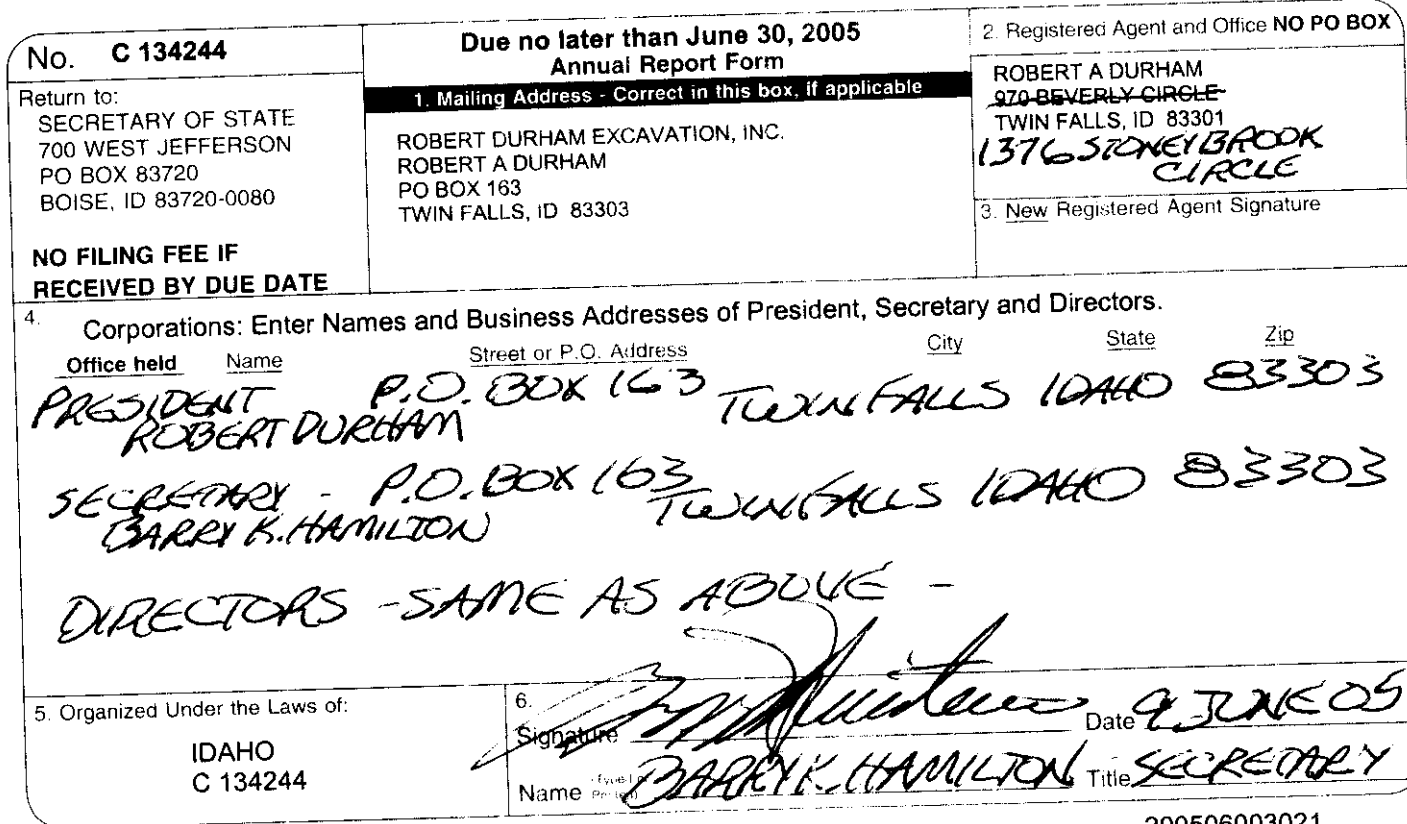 No. C 134244
Return to:
SECRETARY OF STATE
700 WEST JEFFERSON
PO BOX 83720
BOISE, ID 83720-0080
NO FILING FEE IF
RECEIVED BY DUE DATE
Due no later than June 30, 2005
Annual Report Form
1. Mailing Address - Correct in this box, if applicable
ROBERT DURHAM EXCAVATION, INC.
ROBERT A DURHAM
PO BOX 163
TWIN FALLS, ID 83303
2. Registered Agent and Office NO PO BOX
ROBERT A DURHAM
970 BEVERLY CIRCLE
TWIN FALLS, ID 83301
1376 STONEYBROOK
CIRCLE
3. New Registered Agent Signature
4. Corporations: Enter Names and Business Addresses of President, Secretary and Directors.
Office held Name Street or P.O. Address City State Zip
PRESIDENT P.O. BOX 163 TWIN FALLS IDAHO 83303
ROBERT DURHAM
SECRETARY - P.O. BOX 163 TWIN FALLS IDAHO 83303
BARRY K. HAMILTON
DIRECTORS - SAME AS ABOVE -
5. Organized Under the Laws of:
IDAHO
C 134244
6.
Signature Date 9 JUNE 05
Name BARRY K. HAMILTON Title SECRETARY
200506003021